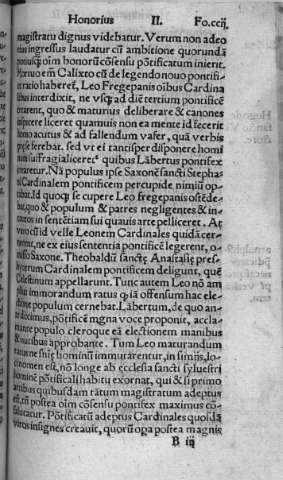 Honorius II. Fo.ccij
magistratu dignus videbatur. Verum non adeo
eius ingressus laudatur cū ambitione quorundā
potiusqȝ oīm honorū cōsensu pōtificatum inierit.
Mortuo em̄ Calixto cū de legendo nouo pontifi-
ratio haberet, Leo Fregepanis oībus Cardina
ibus interdixit, ne vsqȝ ad diē tertium pontificē
crearent, quo & maturius deliberare & canones
inspicere liceret quamuis non ea mente id fecerit
homo acutus & ad fallendum vafer, quā verbis
prę se ferebat. sed vt ei tantisper disponere homi
num suffragia liceret quibus Lābertus pontifex
crearetur. Nā populus ipse Saxonē sancti Stepha
Cardinalem pontificem percupide nimiū op-
tabat. Id quoqȝ se cupere Leo fregepanis ostēde-
bat, quo & populum & patres negligentes & in-
cautos in sententiam sui quauis arte pelliceret. At
vbi id velle Leonem Cardinales quidā cer-
nerent, ne ex eius sententia pontificē legerent, o-
misso Saxone. Theobaldū sanctę Anastasię pres-
byterum Cardinalem pontificem deligunt, quē
Cęlestinum appellarunt. Tunc autem Leo nō am
plius immorandum ratus qȝ iā offensum hac ele-
ctione populum cernebat. Lābertum, de quo an-
te diximus, pōtificē magna voce proponit, accla-
mante populo cleroque eā electionem manibus
& vocibus approbante. Tum Leo maturandum
ratus ne sīgę hominū immutarentur,
nomen est, nō longe ab ęcclesia sancti syluestri
hominē pōtificali habitu exornat, qui & si primo
artibus quibusdam tātum magistratum adeptus
est, tn̄ postea oīm cōsensu pontifex maximus cō-
salutatur. Pōtificatū adeptus Cardinales quosdā
viros insignes creauit, quorū opa postea magnis
B iij